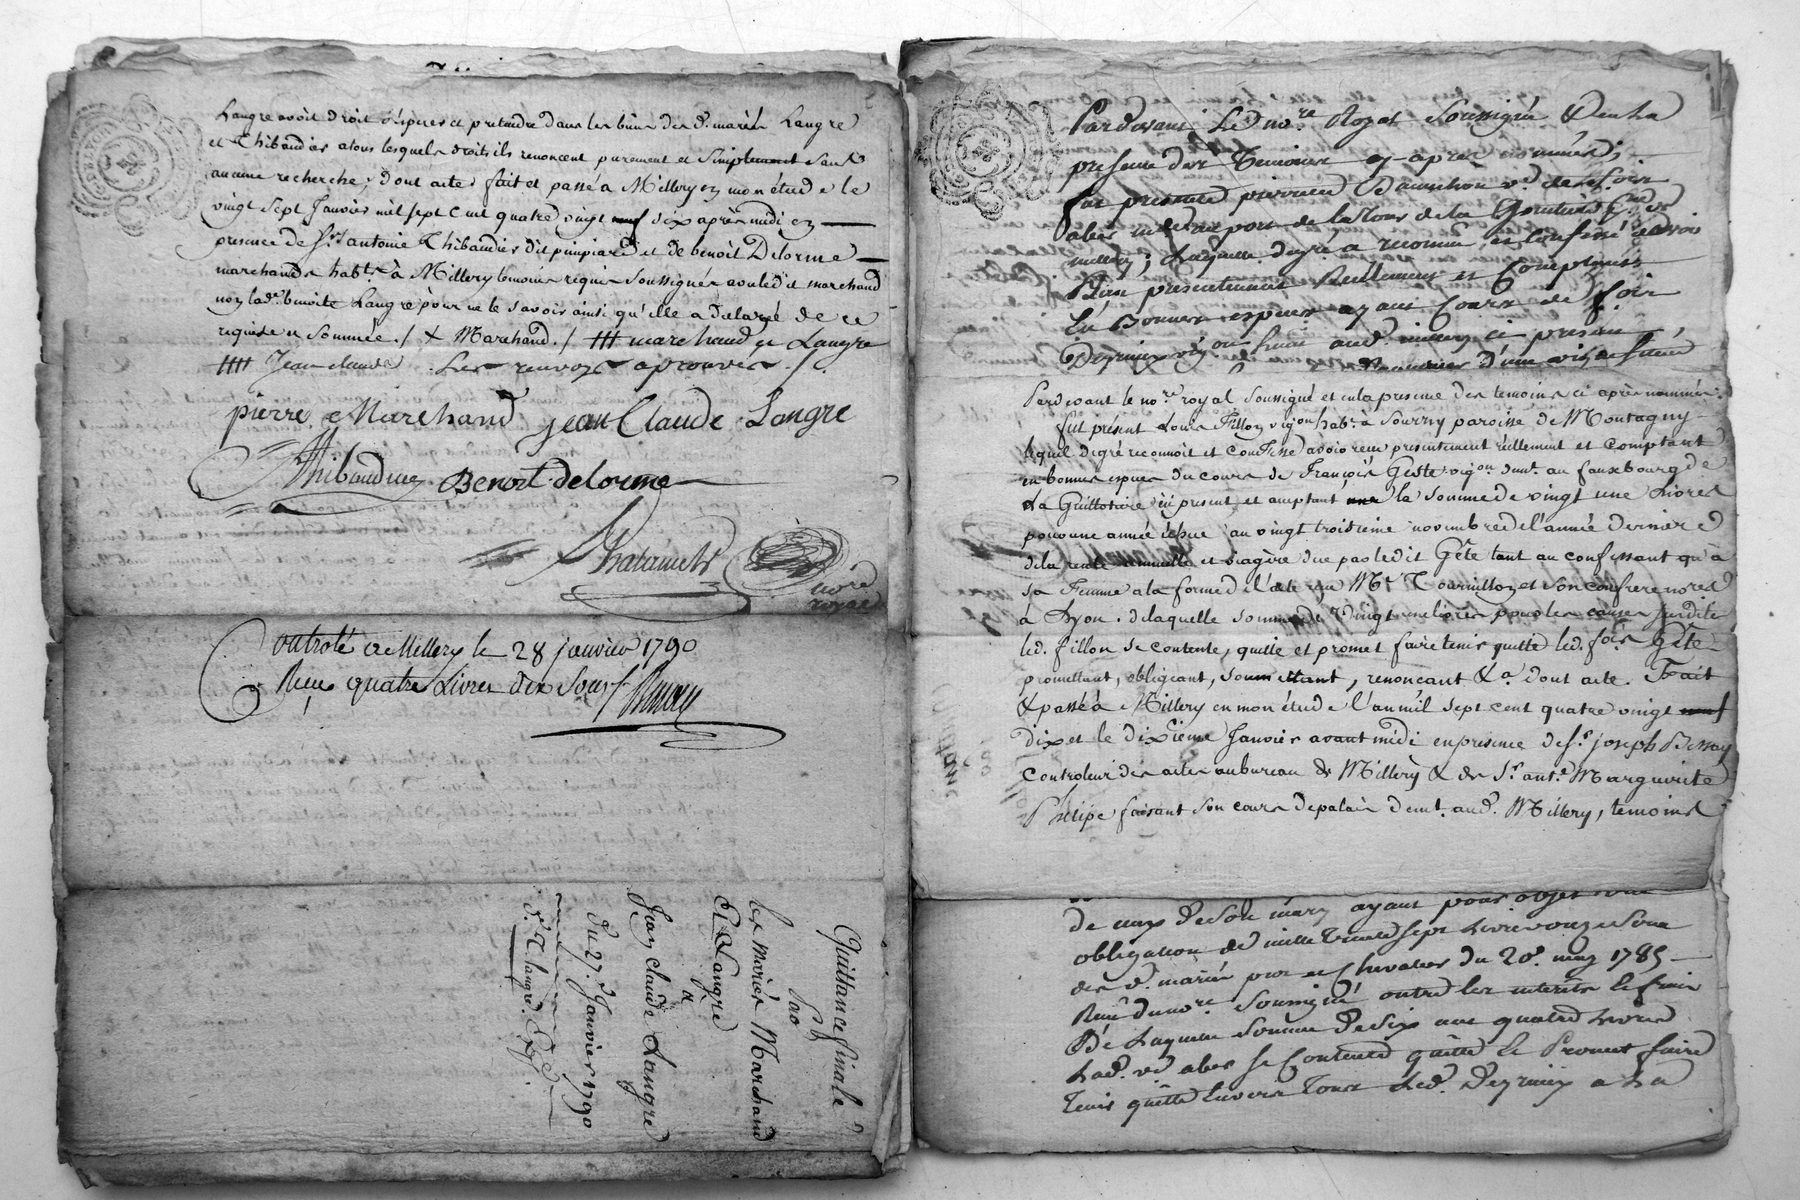 Langre avoit droit d'éspérer et prétendre dans les biens des d. mariés Langre
et Thibaudier a tous lesquels droits ils renoncent purement et simplement sans
aucune recherche; dont acte, fait et passé a Millery en mon étude le
vingt sept Janvier mil sept cent quatre vingt neuf dix après midi en
presence de Sr. antoine Thibaudier dit pimpiare et de benoit Delorme
marchands habts. à Millery temoins requis soussignés avec ledit marchand
non lade. benoite Langre pour ne le savoir ainsi qu'elle a declaré de ce
requise et sommée ./. + Marchand ./. //// marchand et Langre
//// Jean claude . Les renvoys aprouvés ./.
pierre Marchand jean Claude Langre
Thibaudier Benoit delorme
nore
royal
Controlé a Millery le 28 janvier 1790
Reçu quatre Livres dix Sous
Quittance finale
par
les mariés Marchand
Et Langre
a
Jean claude Langre
du 27. Janvier 1790
Pardevant Le nore Royal Soussigné & en la
presence des temoins cy apres només;
fut presente pierrette
millery; Laquelle degré a reconnu et confessé avoir
presentement Reellement et Comptant
En Bonnes especes ayant cours de
Pardevant le nore. royal soussigné et en la presence des temoins ci après nommés;
fut présent Louis Fillon vigon habt. à Sourzy paroisse de Montagny
lequel degré reconnoit et confesse avoir reçu presentement réellement et comptant
en bonnes espèces du cours de François Gête vigon demt. au fauxbourg de
La Guillotiere ici present et acceptant la somme de vingt une Livres
pour une année échue au vingt troisieme novembre de l'année derniere
de la rente annuelle et viagère due par ledit Gête tant au confessant qu'à
sa femme a la forme de l'acte reçu Me Tournillon et son confrere nores
à Lyon. de laquelle somme de vingt une livres pour les causes susdites
led. fillon se contente, quitte et promet faire tenir quitte led. fois Gête
promettant, obligeant, soumettant, renoncant &a. dont acte. Fait
& passé à Millery en mon étude l'an mil sept cent quatre vingt neuf
dix et le dixieme Janvier avant midi en presence de sr. joseph Bessay
controleur des actes au bureau de Millery & de Sr. ante. Marguerite
Phelipe faisant son cours de palais demt. aud. Millery, temoins
de son mary ayant pour objet une
obligation de mille trente sept Livres onze sous
des d. mariés pour et Chevalier du 20e. may 1785
Reçue du nore. soussigné outre les interêts & frais
De Laquelle somme de six cent quatre Livres
Lade. ve aber se contente quitte & Promet faire
Tenir quitte envers tous Led. Deyrieux a La